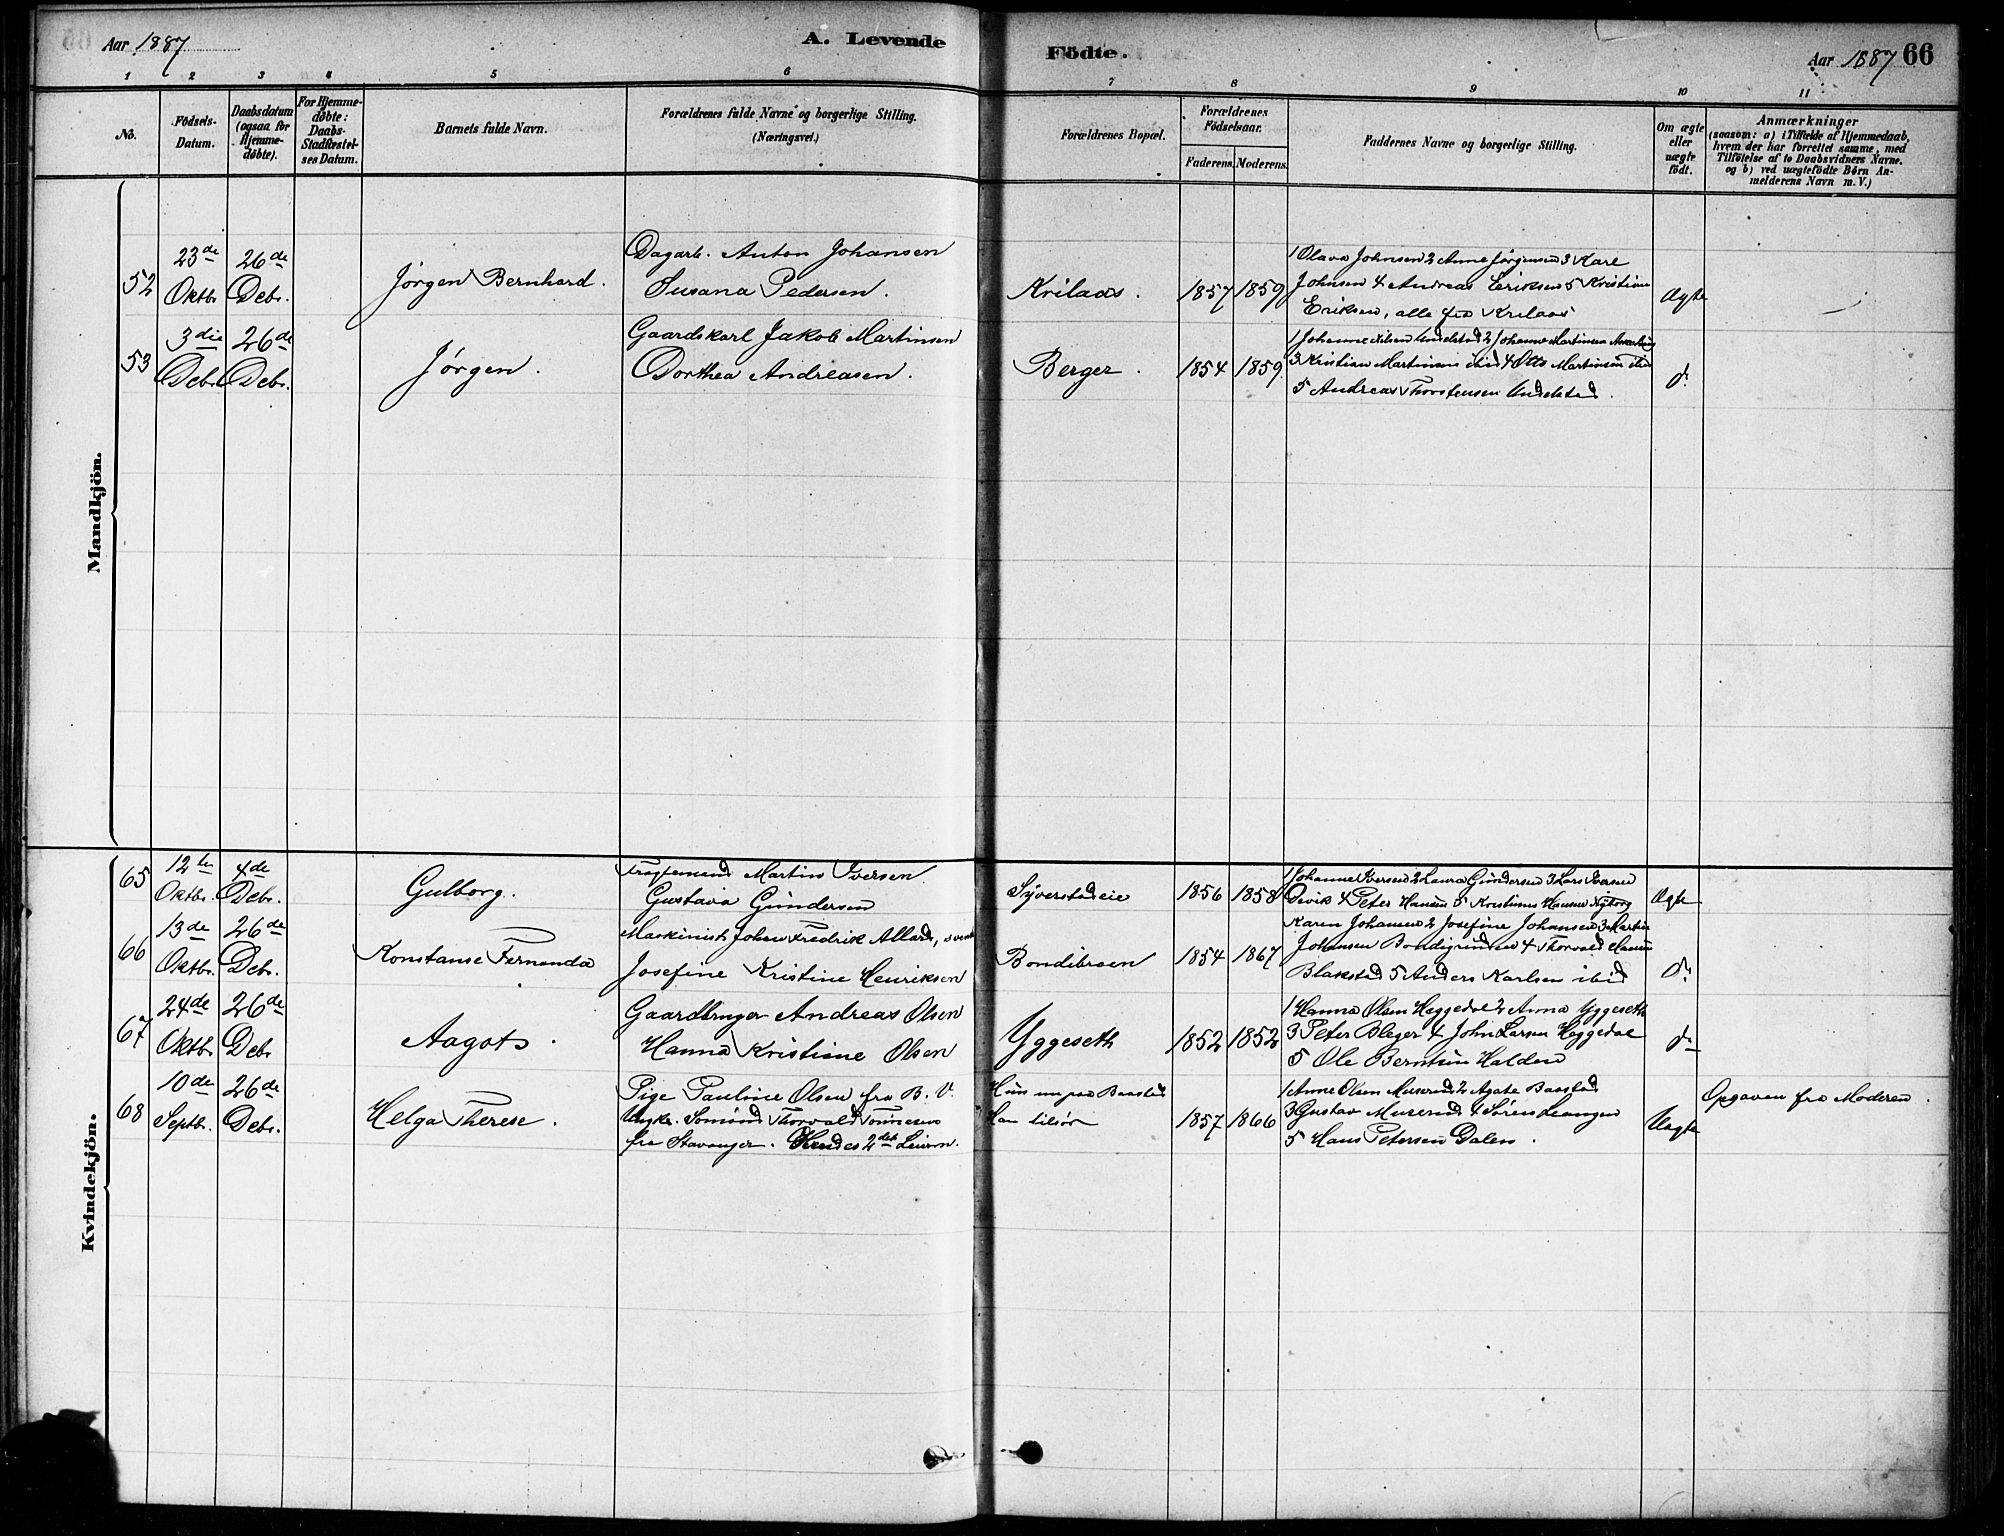 Aar 1887
A. Levende
Födte.
Aar 1887 66
1 2 3 4 5 6 7 8 9 10 11
No.
Födsels-
Datum.
Daabsdatum
(ogsaa for
Hjemme-
döbte).
For Hjemme-
döbte:
Daabs-
Stadfæstel-
ses Datum.
Barnets fulde Navn.
Forældrenes fulde Navne og borgerlige Stilling.
(Næringsvei.)
Forældrenes Bopæl.
Forældrenes
Födselsaar.
Faderens. Moderens.
Faddernes Navne og borgerlige Stilling.
Om ægte
eller
uægte
födt.
Anmærkninger
(saasom: a) i Tilfælde af Hjemmedaab,
hvem der har forrettet samme, med
Tilföielse af to Daabsvidners Navne.
og b) ved uægtefödte Börn An-
melderens Navn m. V.)
Mandkjön.
52
23de
Oktbr.
26de
Debr.
Jørgen Bernhard.
Dagarb. Anton Johansen
Susana Pedersen.
Krilaas.
1857 1859
1 Olava Johnsen 2 Anne Jørgensen 3 Karl
Johnsen 4 Andreas Eriksen 5 Kristian
Eriksen, alle fra Krilaas
Ægte
53
3die
Debr.
26de
Debr.
Jørgen.
Gaardskarl Jakob Martinsen
Dorthea Andreasen.
Berger.
1854 1859
1 Johanne Nilsen Undelstad 2 Johanne Martinsen
3 Kristian Martinsen ibid 4 Otto Martinsen ibid
5 Andreas Thorstensen Undelstad.
do
Kvindekjön.
65
12te
Oktbr.
4de
Debr.
Gulborg.
Martin Iversen
Gustava Gundersen
Syverstadeie
1856 1858
1 Johanne Iversen 2 Laura Gundersen 3 Lars Iversen
4 Peter Hansen 5 Kristians Hansen Nyborg
Ægte
66
13de
Oktbr.
26de
Debr.
Konstanse Fernanda
Maskinist Johan Fredrik Allard, svensk
Josefine Kristine Henriksen
Bondibroen
1854 1867
Karen Johansen 2 Josefine Johansen 3 Martin
Johansen Bondigrinden 4 Thorvald Hansen
Blakstad 5 Anders Karlsen ibid
do
67
24de
Oktbr.
26de
Debr
Aagot.
Gaardbruger Andreas Olsen
Hanna Kristiane Olsen
Yggeseth
1852 1852
1 Hanna Olsen Heggedal 2 Anna Yggeseth
3 Peter Bleger 4 John Larsen Heggedal
5 Ole Berntsen Halden
do
68
10de
Septbr.
26de
Debr.
Helga Therese.
Pige Pauline Olsen fra B. V.
Ungk. Sømand Thorvald Tønnesen
fra Stavanger. Hendes 2det Leierm.
Hun nu paa Baastad
Han tilsøs
1857 1866
1 Anne Olsen Muserud 2 Agate Baastad
3 Gustav Muserud 4 Søren Leangen
5 Hans Petersen Dalen.
Uægte
Opgaven fra Moderen.